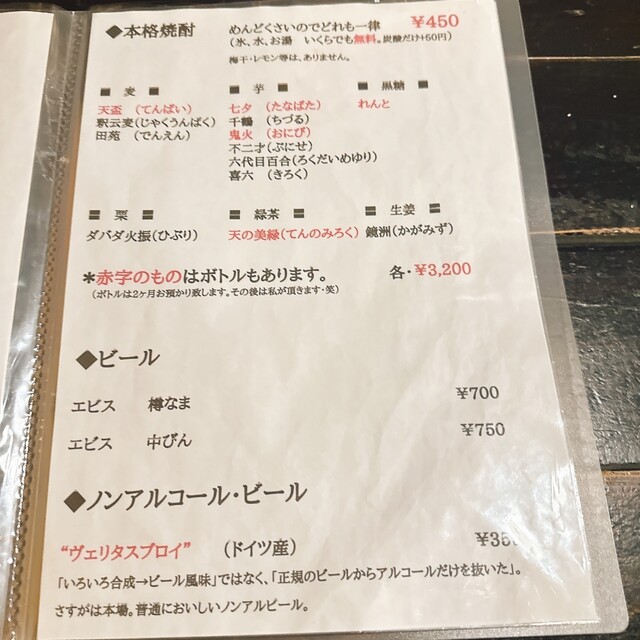 ◆本格焼酎 めんどくさいのでどれも一律 ¥450
(氷、水、お湯 いくらでも無料。炭酸だけ+50円)
梅干・レモン等は、ありません。
〓 麦 〓 〓 芋 〓 〓 黒糖 〓
天盃 (てんぱい) 七夕 (たなばた) れんと
釈云麦(じゃくうんばく) 千鶴 (ちづる)
田苑 (でんえん) 鬼火 (おにび)
不二才(ぶにせ)
六代目百合(ろくだいめゆり)
喜六 (きろく)
〓 栗 〓 〓 緑茶 〓 〓 生姜 〓
ダバダ火振(ひぶり) 天の美緑(てんのみろく) 鏡洲(かがみず)
*赤字のものはボトルもあります。 各・¥3,200
(ボトルは2ヶ月お預かり致します。その後は私が頂きます・笑)
◆ビール
エビス 樽なま ¥700
エビス 中びん ¥750
◆ノンアルコール・ビール
“ヴェリタスブロイ” (ドイツ産)
「いろいろ合成→ビール風味」ではなく、「正規のビールからアルコールだけを抜いた」。
さすがは本場。普通においしいノンアルビール。